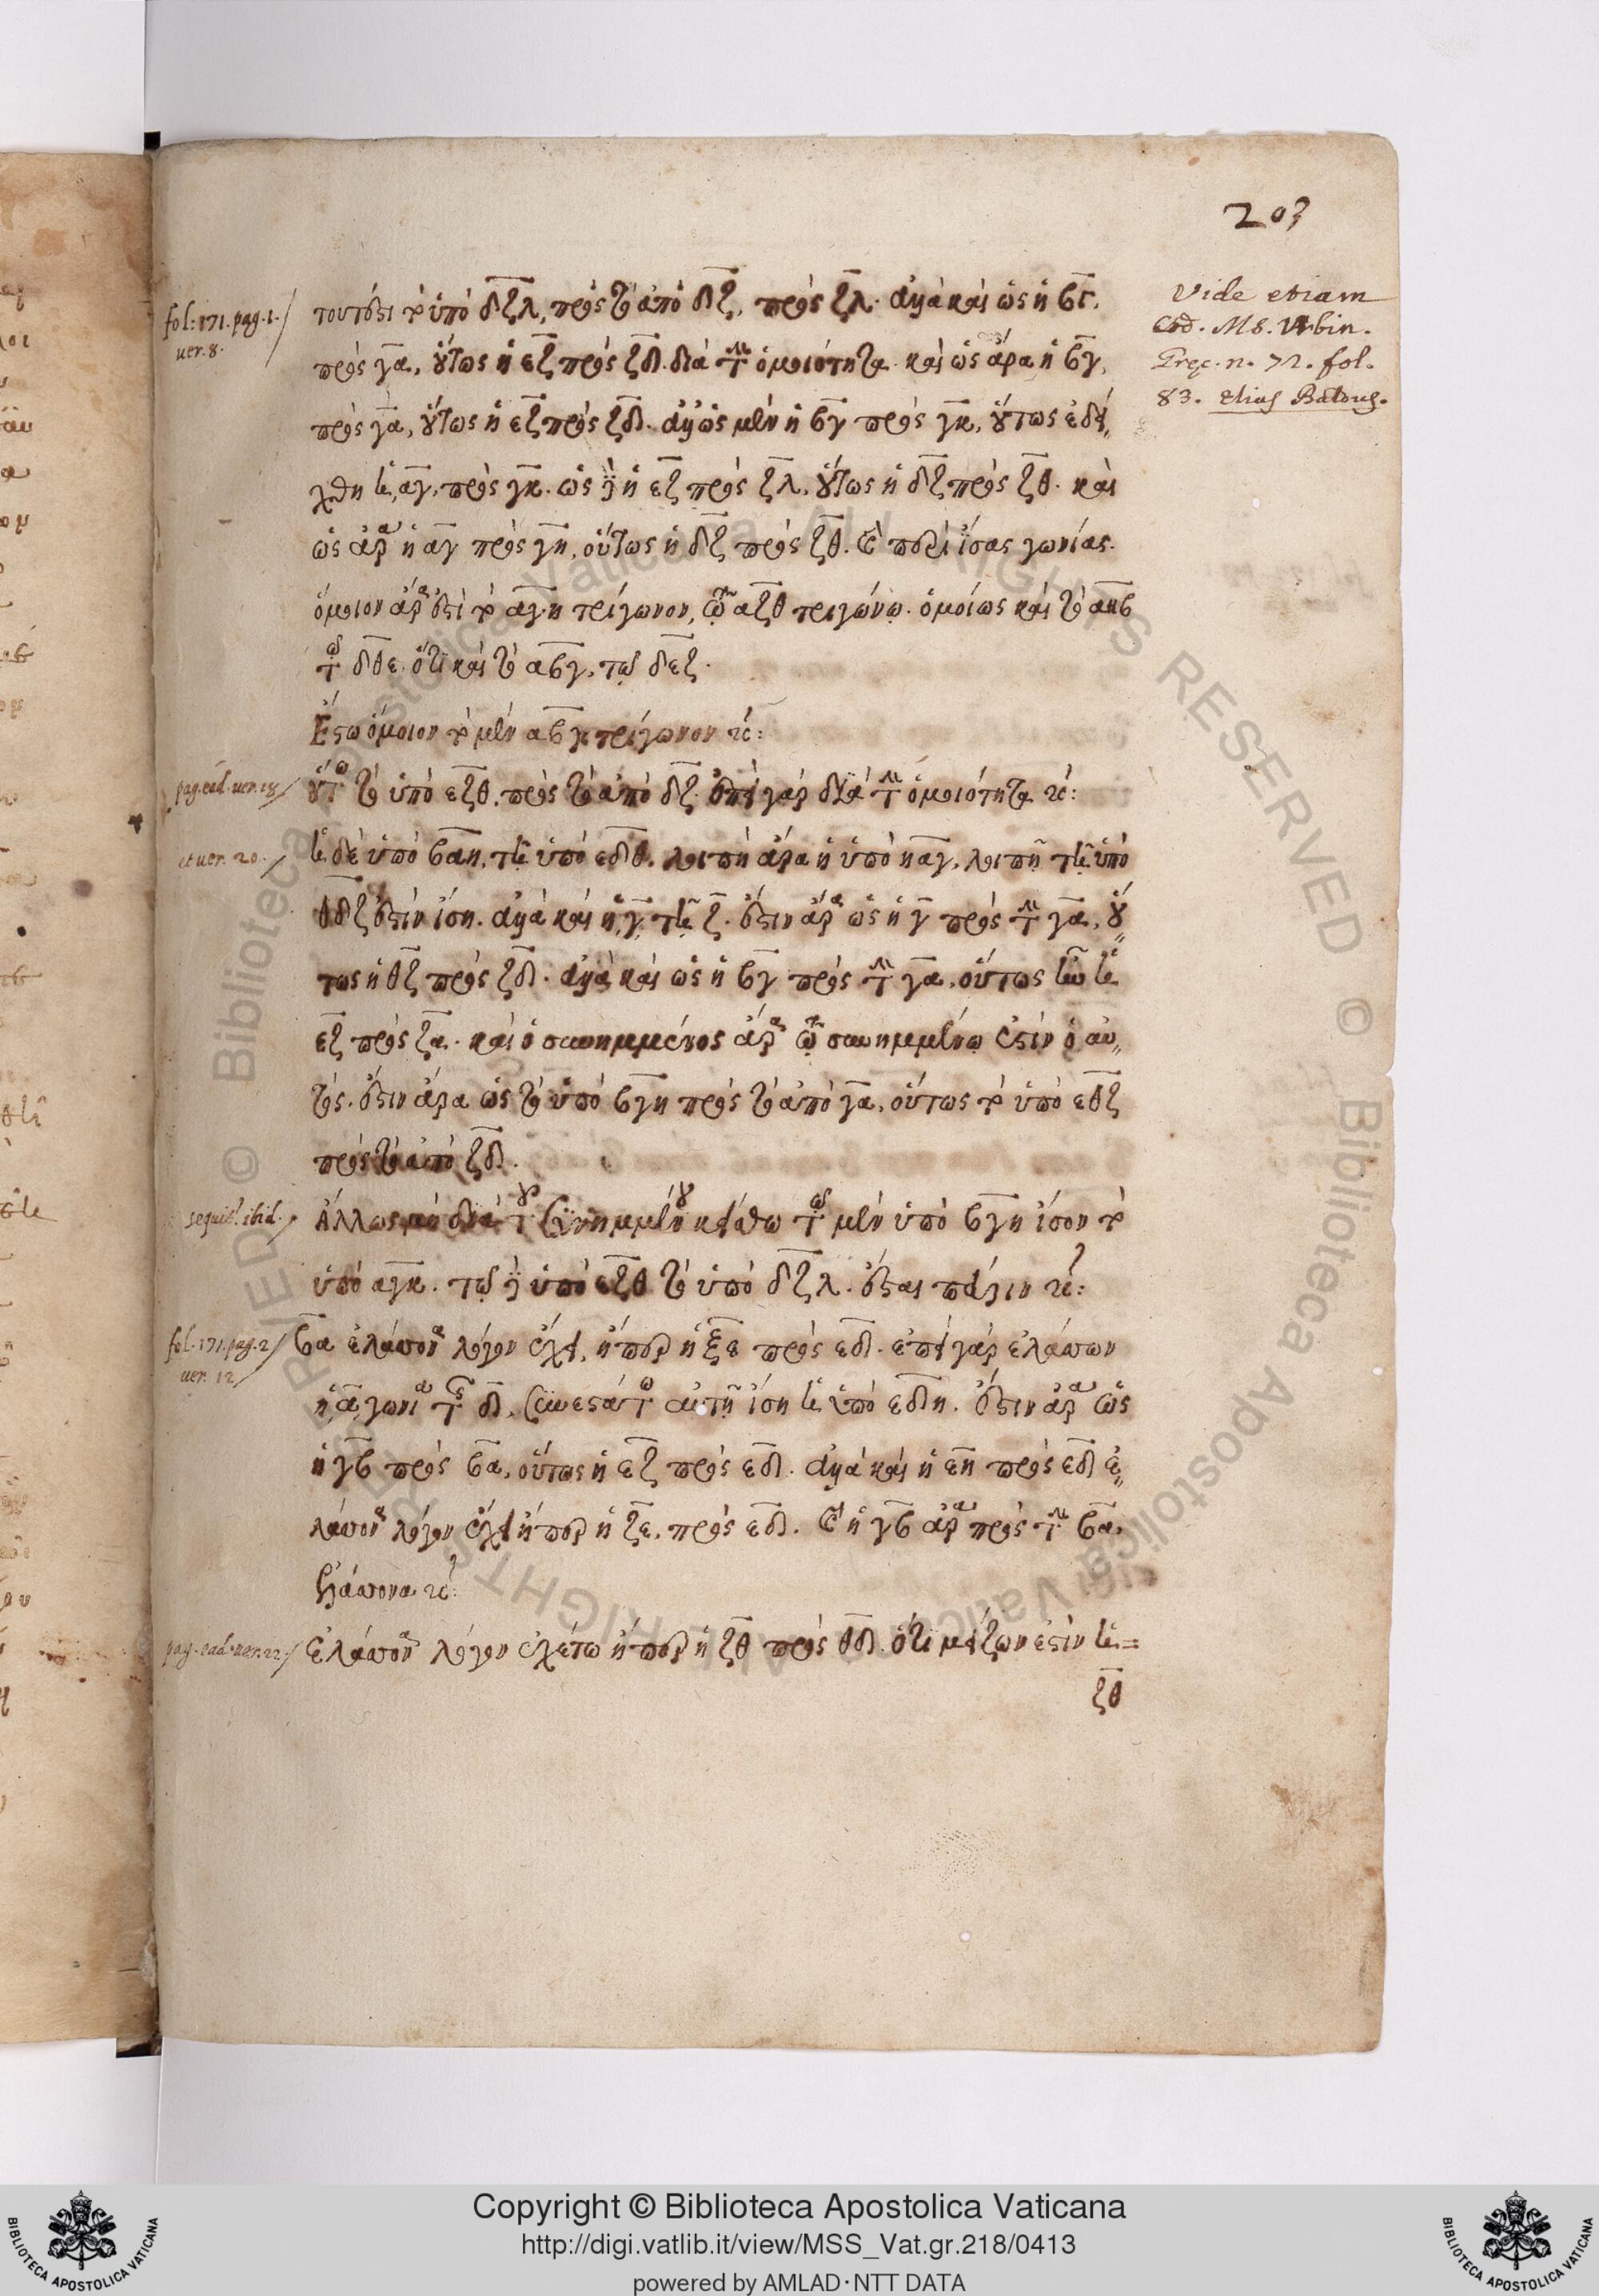 203
Vide etiam
Cod. Ms. Urbin.
Gręc. n. 72. fol.
83.
fol: 171. pag. 1.
uer. 8.
τουτέστι τὸ ὑπὸ δζλ, πρὸς τὸ ἀπὸ δζ, πρὸς ζλ. ἀλλὰ καὶ ὡς ἡ βγ,
πρὸς γα, οὕτως ἡ εζ πρὸς ζδ. διὰ τὴν ὁμοιότητα. καὶ ὡς ἄρα ἡ βγ,
πρὸς γα, οὕτως ἡ εζ πρὸς ζδ. ἀλλ' ὡς μὲν ἡ βγ πρὸς γκ, οὕτως ἐδεί„
χθη ἡ αγ, πρὸς γκ. ὡς δὲ ἡ εζ πρὸς ζλ, οὕτως ἡ δζ πρὸς ζθ. καὶ
ὡς ἄρα ἡ αγ πρὸς γη, οὕτως ἡ δζ πρὸς ζθ. καὶ περὶ ἴσας γωνίας.
ὅμοιον ἄρα ἐστὶ τὸ αγη τρίγωνον, τῷ αζθ τριγώνῳ. ὁμοίως καὶ τὸ αηβ
τῷ δθε. ὅτι καὶ τὸ αβγ, τῷ δεζ.
Ἔστω ὅμοιον τὸ μὲν αβγ τρίγωνον κ:
pag. ead. uer. 18
οὕτω τὸ ὑπὸ εζθ, πρὸς τὸ ἀπὸ δζ. ἐπεὶ γὰρ διὰ τὴν ὁμοιότητα κ:
et uer. 20.
ἡ δὲ ὑπὸ βαη, τῇ ὑπὸ εδθ. λοιπὴ ἄρα ἡ ὑπὸ ηαγ, λοιπῇ τῇ ὑπὸ
θδζ ἐστὶν ἴση. ἀλλὰ καὶ ἡ γ τῇ ζ. ἔστιν ἄρα ὡς ἡ γ πρὸς τὴν γα, οὕ„
τως ἡ θζ πρὸς ζδ. ἀλλὰ καὶ ὡς ἡ βγ πρὸς τὴν γα, οὕτως ἦν ἡ
εζ πρὸς ζα. καὶ ὁ συνημμένος ἄρα τῷ συνημμένῳ ἐστὶν ὁ αὐ„
τός. ἔστιν ἄρα ὡς τὸ ὑπὸ βγη πρὸς τὸ ἀπὸ γα, οὕτως τὸ ὑπὸ εθζ
πρὸς τὸ ἀπὸ ζδ.
sequit.' ibid.
Ἄλλως μὴ διὰ τοῦ συνημμένου κείσθω τῷ μὲν ὑπὸ βγη ἴσον τὸ
ὑπὸ αγκ. τῷ δὲ ὑπὸ εζθ τὸ ὑπὸ δζλ. ἔσται πάλιν κ:
fol. 171. pag. 2
uer. 12
βα ἐλάττονα λόγον ἔχει, ἤπερ ἡ ξε πρὸς εδ. ἐπεὶ γὰρ ἐλάττων
ἡ α γωνία τῆς δ, συνεστάτω αὐτῇ ἴση ἡ ὑπὸ εδη. ἔστιν ἄρα ὡς
ἡ γβ πρὸς βα, οὕτως ἡ εζ πρὸς εδ. ἀλλὰ καὶ ἡ εη πρὸς εδ ἐ„
λάττονα λόγον ἔχει ἤπερ ἡ ζε, πρὸς εδ. καὶ ἡ γβ ἄρα πρὸς τὴν βα,
ἐλάττονα κ:
pag. ead. uer. 22.
ἐλάττονα λόγον ἐχέτω ἤπερ ἡ ζθ πρὸς θδ. ὅτι μείζων ἐστὶν ἡ =
ζθ
Copyright © Biblioteca Apostolica Vaticana
http://digi.vatlib.it/view/MSS_Vat.gr.218/0413
powered by AMLAD·NTT DATA